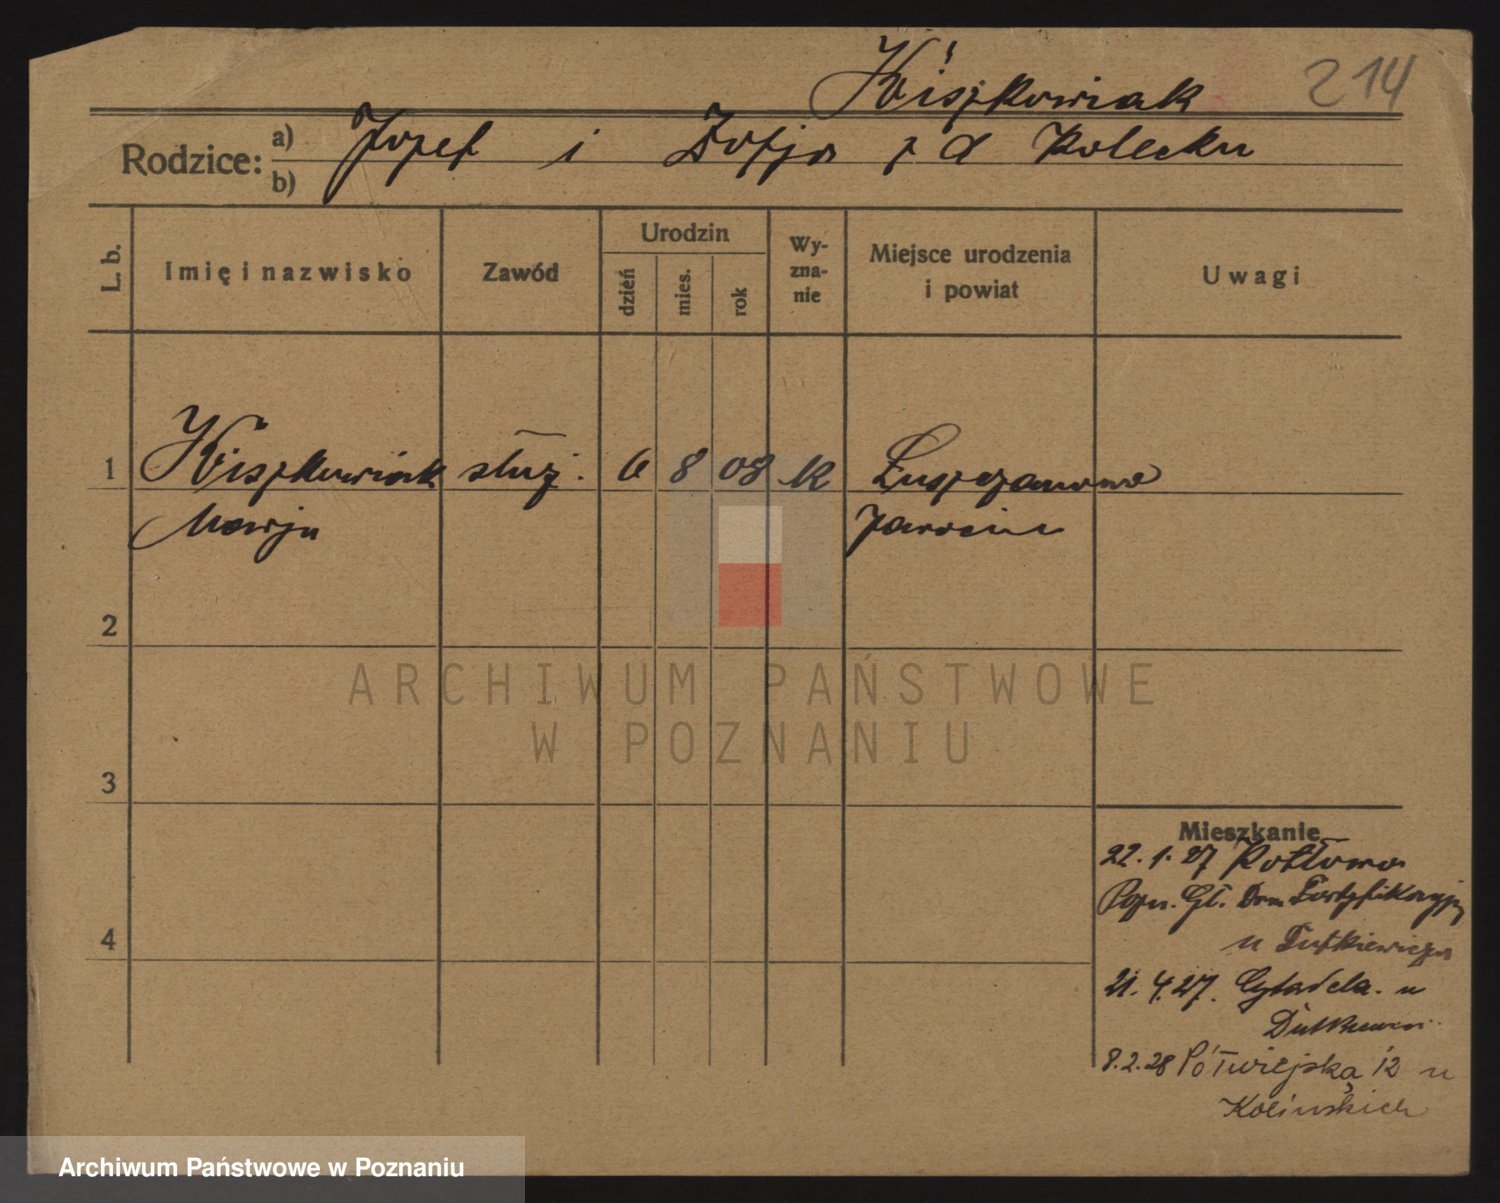 Kiszkowiak 214
Rodzice: a) Józef i Zofja z d Kolecka
b)
L. b. Imię i nazwisko Zawód Urodzin dzień mies. rok Wyznanie Miejsce urodzenia i powiat Uwagi
1 Kiszkowiak służ. 6 8 08 K Łuszczanowo
Marja Jarocin
2
3
4
Mieszkanie
22.1.27 
Pozn. Gł. Dom Fortyfikacyjny
u Dutkiewicza
21.4.27. Cytadela. u
8.2.28 Półwiejska 12 u
Kolińskich
ARCHIWUM PAŃSTWOWE
W POZNANIU
Archiwum Państwowe w Poznaniu